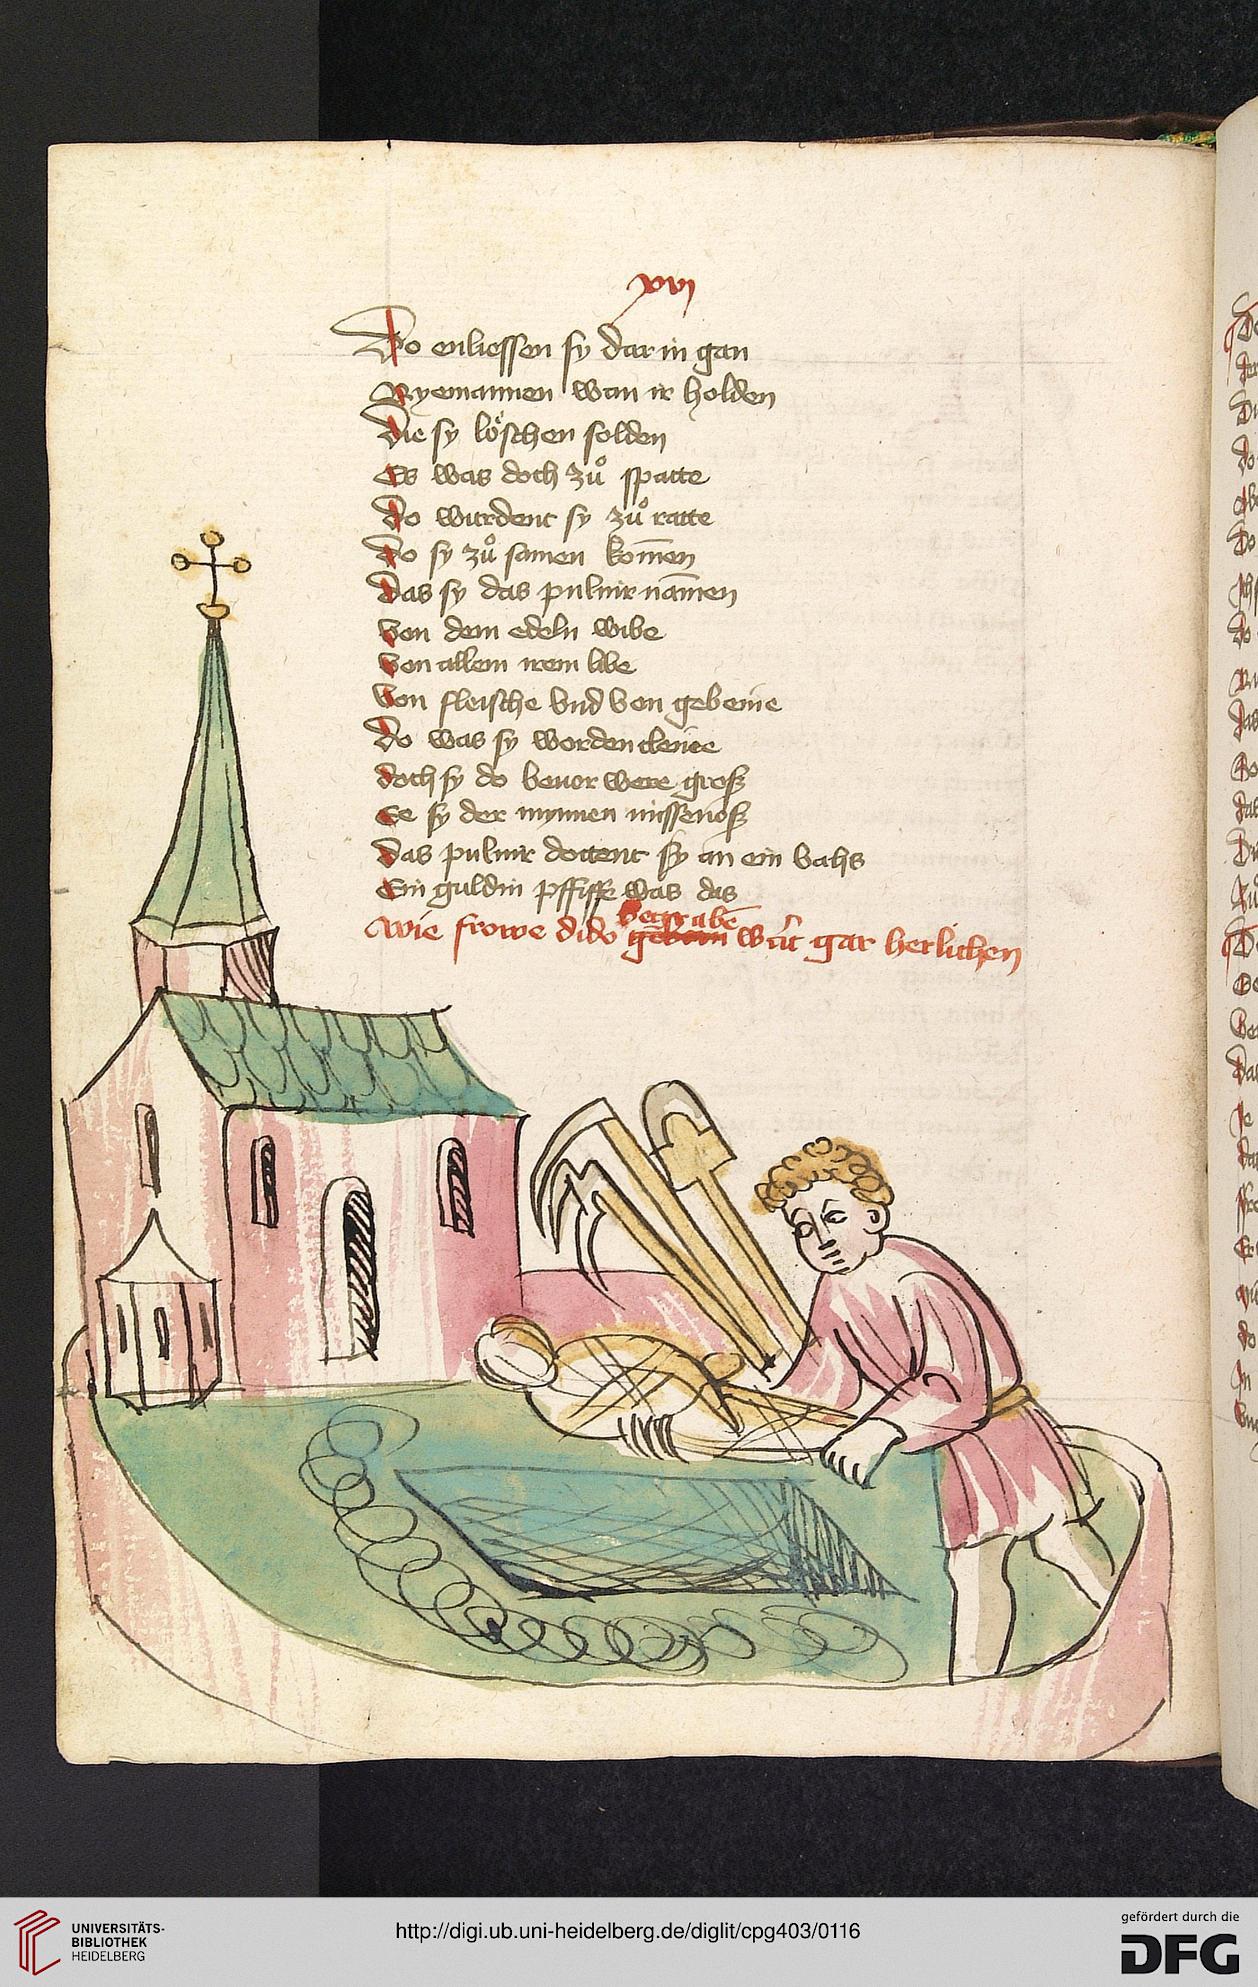 xvi
Do enliessen sy dar in gan
Nyemannen wan ir holden
Die sy löschen solden
Es was doch zuͦ spatte
Do wurdent sy zuͦ ratte
Do sy zuͦ samen kom̄en
Das sy das puluir nam̄en
Von dem edeln wibe
Von allem irem libe
Von fleische vnd von gebeine
Do was sy worden cleine
doch sy do beuor were groß
Ee sy der mynnen missenoß
Das puluir dottent sy an ein vahs
Ein guldin pffiffe was das
Wie frowe dido begrabē wart gar herlichen
UNIVERSITÄTS-
BIBLIOTHEK
HEIDELBERG
http://digi.ub.uni-heidelberg.de/diglit/cpg403/0116
gefördert durch die
DFG